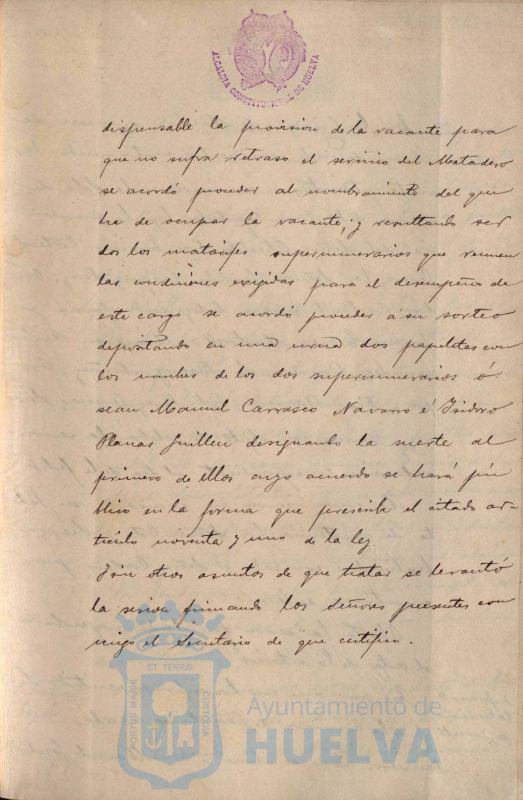 ALCALDIA CONSTITUCIONAL DE HUELVA
dispensable la provision de la vacante para
que no sufra retraso el servicio del Matadero
se acordó proceder al nombramiento del que
ha de ocupar la vacante; y resultando ser
dos los matarifes supernumerarios que reunen
las condiciones exigidas para el desempeño de
este cargo se acordó proceder á su sorteo
depositando en una urna dos papeletas con
los nombres de los dos supernumerarios ó
sean Manuel Carrasco Navarro é Isidoro
Planas Guillen designando la suerte al
primero de ellos cuyo acuerdo se hará pú-
blico en la forma que prescribe el citado ar-
tículo noventa y uno de la ley.
Y sin otros asuntos de que tratar se levantó
la sesion firmando los Señores presentes con-
migo el Secretario de que certifico.
ET TERRÆ
PORTUS MARIS
CUSTODIA
Ayuntamiento de
HUELVA